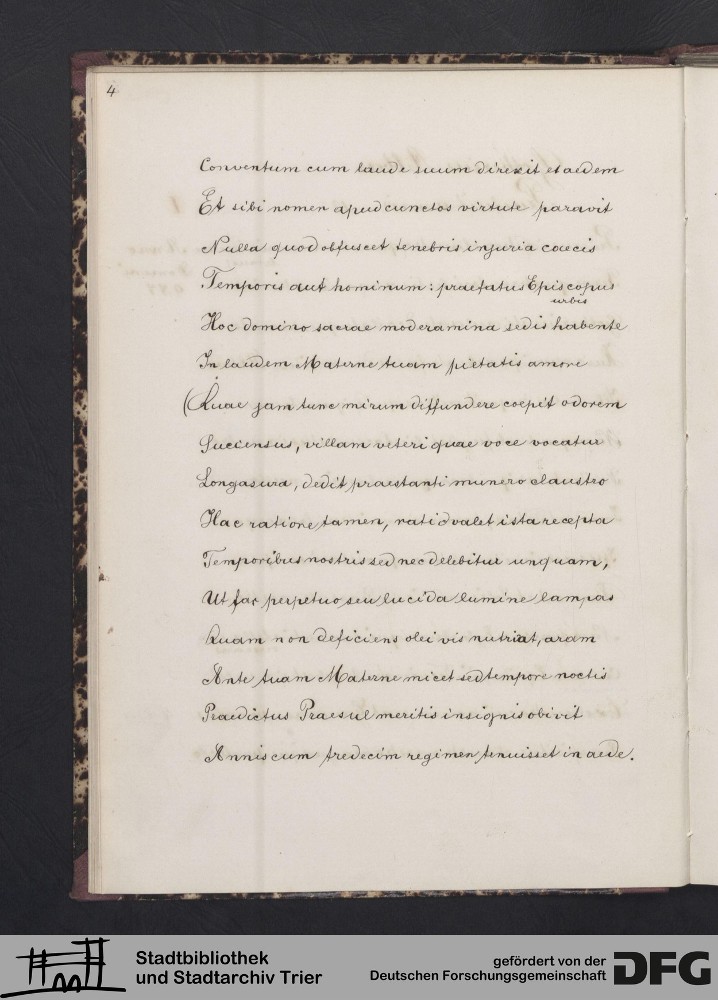 4
Conventum cum laude suum direxit et aedem
Et sibi nomen apud cunctos virtute paravit
Nulla quod obfuscet tenebris injuria coecis
Temporis aut hominum: praefatus Episcopus
urbis
Hoc domino sacrae moderamina sedis habente
In laudem Materne tuam pietatis amore
(Quae jam tunc mirum diffundere coepit odorem
Succensus, villam veteri quae voce vocatur
Longasura, dedit praestanti munero claustro
Hac ratione tamen, ratio valet ista recepta
Temporibus nostris sed nec delebitur unquam,
Ut fax perpetuo seu lucida lumine lampas
Quam non deficiens olei vis nutriat, aram
Ante tuam Materne micet sed tempore noctis
Praedictus Praesul meritis insignis obivit
Annis cum tredecim regimen tenuisset in aede.
Stadtbibliothek
und Stadtarchiv Trier
gefördert von der
Deutschen Forschungsgemeinschaft
DFG